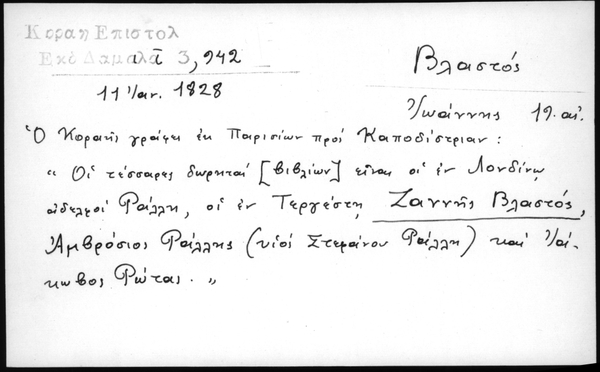 Κοραη Επιστολ
Εκδ Δαμαλᾶ 3, 942
11 Ἰαν. 1828
Βλαστός
Ἰωάννης 19. αἰ.
Ὁ Κοραῆς γράφει ἐκ Παρισίων πρὸς Καποδίστριαν:
« Οἱ τέσσαρες δωρηταὶ [βιβλίων] εἶναι οἱ ἐν Λονδίνῳ
ἀδελφοὶ Ράλλη, οἱ ἐν Τεργέστῃ Ζαννῆς Βλαστός,
Ἀμβρόσιος Ράλλης (υἱὸς Στεφάνου Ράλλη) καὶ Ἰά-
κωβος Ρώτας. »